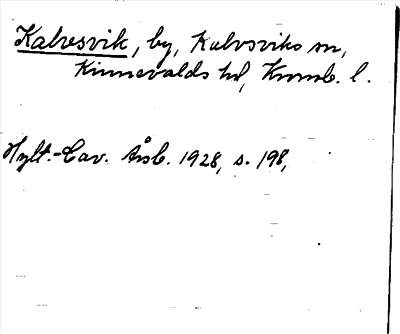 Kalvesvik, by, Kalvsviks sn,
Kinnevalds hd, Kronob. l.
Hylt.-Cav. Årsb. 1928, s. 198,